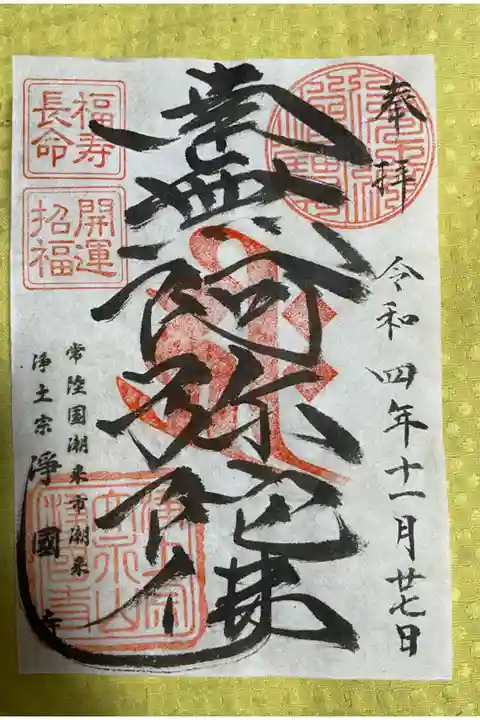 奉拝
令和四年十一月廿七日
南無阿弥陀佛
常陸国潮来市潮来
浄土宗 淨國寺
福寿
長命
開運
招福